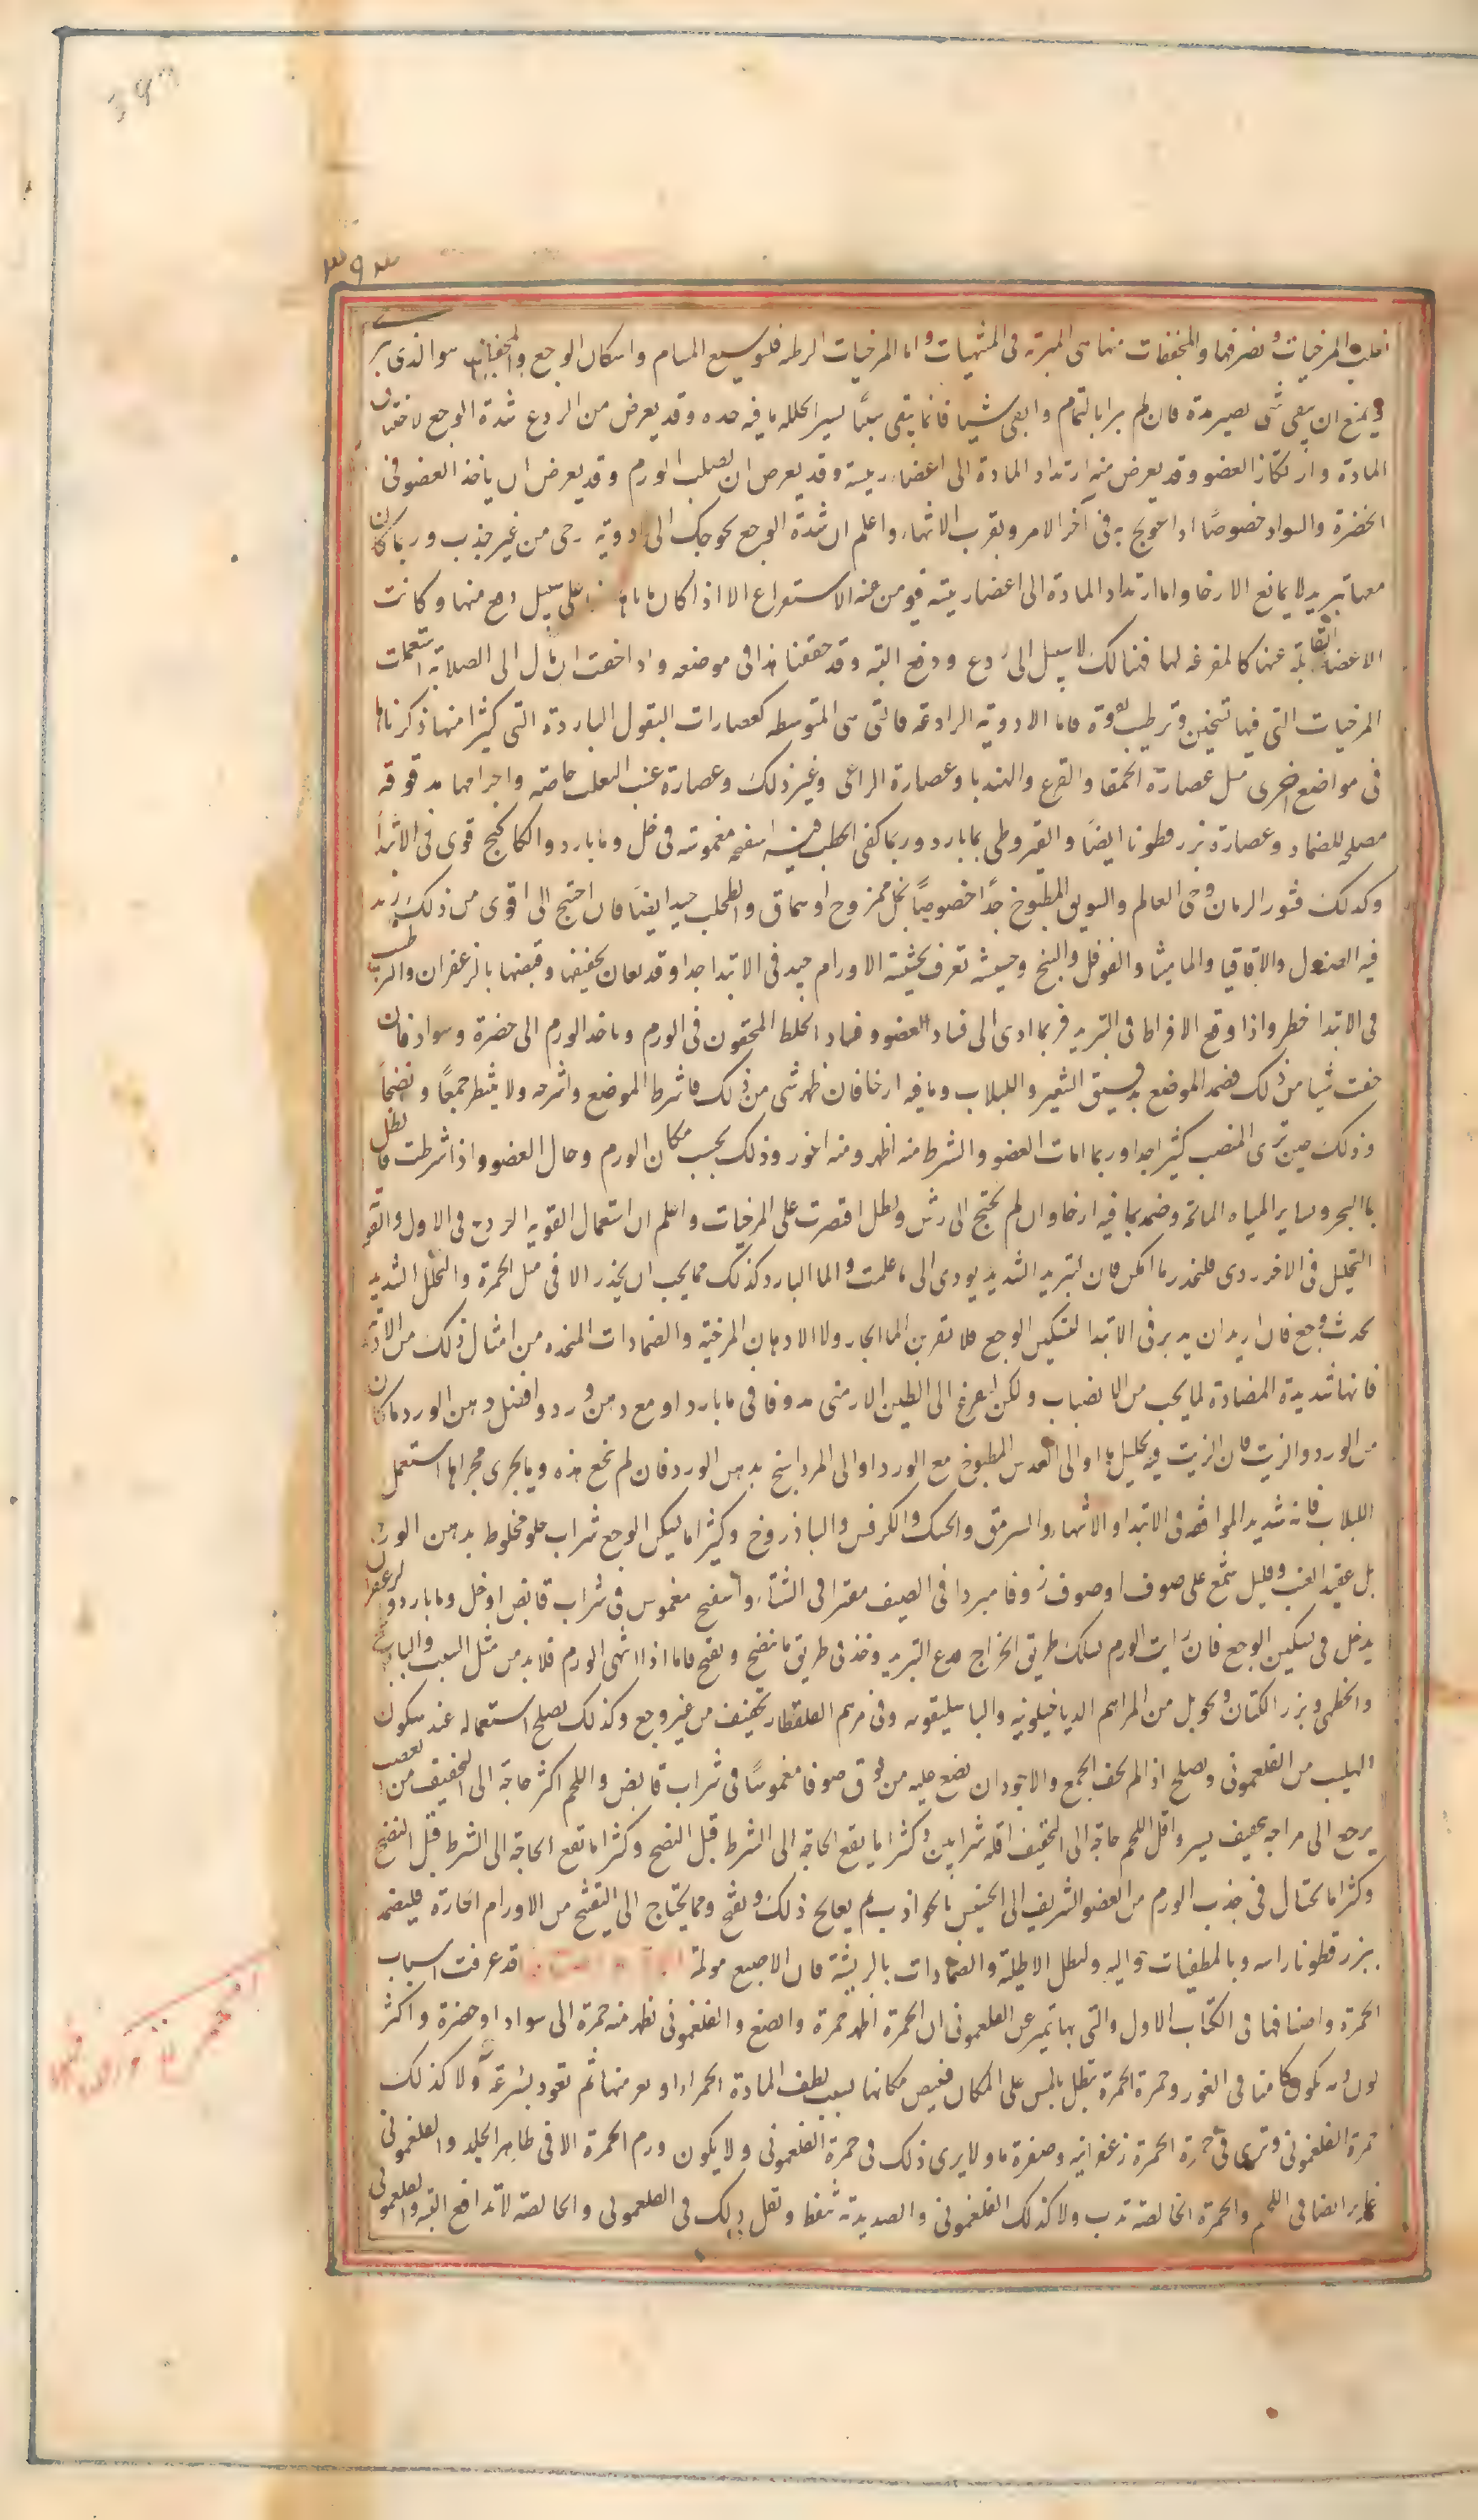 ٣٩٣
المرخيات وتصرفها والمجففات منها هي المبرئة في المنتهيات واما المرخيات الرطبة فلتوسيع المسام واسكان الوجع والمجففات هو الذي يبر
ويمنع ان يبقى شي يصير مدة فان لم يبرا بالتمام وابقى شيا فانما يبقى شيئا يسيرا يحلله ما فيه حده وقد يعرض من الردع شدة الوجع لاختقان
المادة وارتكاز العضو وقد يعرض منه ارتداد المادة الى اعضاء رييسة وقد يعرض ان يصلب الورم وقد يعرض ان ياخذ العضو في
الخضرة والسواد خصوصًا اذا عولج به في آخر الامر وبقرب الانتهاء واعلم ان شدة الوجع يحوجك الى ادوية رخي من غير جذب وربما كان
معها تبريد لا يمانع الارخا واما ارتداد المادة الى اعضا رييسة فيومن عنه الاستفراغ الا اذا كان على سبيل دفع منها وكانت
الاعضا القابلة عنها كالمفرغه لها فهنالك لا سبيل الى ردع ودفع البتة وقد حققنا هذا في موضعه واذا خفت ان مال الى الصلابة استعملت
المرخيات التي فيها تسخين وترطيب بقوة فاما الادوية الرادعة فالتي هي المتوسطه كعصارات البقول الباردة التي كثيرا منها ذكرناها
في مواضع اخرى مثل عصارة الحمقا والقرع والهندبا وعصارة الراعي وغير ذلك وعصارة عنب الثعلب خاصة واجرامها مدقوقة
مصلحه للضماد وعصارة بزرقطونا ايضًا والقيروطي بما بارد وربما كفى الخطب فيه اسفنجه مغموسة في خل وما بارد والكاكنج قوى في الابتدا
وكذلك قشور الرمان وحي العالم والسويق المطبوخ جدًا خصوصًا بخل ممزوج او سماق والطحلب جيد ايضًا فان احتيج الى اقوى من ذلك زيد
فيه الصندل والاقاقيا والماميثا والفوفل والبنج وحشيشة تعرف بحشيشة الاورام جيد في الابتدا جدا وقد يعان تجفيفها وقبضها بالزعفران والترطيب
في الابتدا خطر واذا وقع الافراط في التبريد فربما ادى الى فساد العضو وفساد الخلط المحقون في الورم وياخذ الورم الى خضرة وسواد فان
خفت شيا من ذلك فضمد الموضع بدقيق الشعير واللبلاب وما فيه ارخا فان ظهر شي من ذلك فاشرط الموضع واشرحه ولا ينتظر جمعًا ونضجًا
وذلك حين ترى المنصب كثيرا جدا وربما امات العضو والشرط منه اظهر ومنه اغور وذلك بحسب مكان الورم وحال العضو واذا شرطت فانطل
بماالبحر وساير المياه المالحة وضمد بما فيه ارخا وان لم يحتج الى رش ونطل اقتصرت على المرخيات واعلم ان استعمال القويه الردع في الاول والقوى
التحليل في الاخر ردى فليحذر ما امكن فان التبريد الشديد يودى الى ما علمت والما البارد كذلك مما يجب ان يحذر الا في مثل الحمرة والتحلل الشديد
يحدث وجع فان اريد ان يدبر في الابتدا لتسكين الوجع فلا تقربن الماالحار ولا الادهان المرخية والضمادات المتخذه من امثال ذلك من الادوية
فانها شديدة المضادة لما يجب من الانصباب ولكن افزع الى الطين الارمني مدوفا في ما بارد او مع دهن ورد وافضل دهن الورد ما كان
من الورد والزيت فان الزيت فيه تحليل ما او الى العدس المطبوخ مع الورد او الى المرداسنج بدهن الورد فان لم ينجع هذه وما يجرى مجراها استعمل
اللبلاب فانه شديد الموافقه في الابتدا والانتهاء والسرمق والحسك والكرفس والباذروج وكثيرا ما يسكن الوجع شراب حلو مخلوط بدهن الورد
بل عقيد العنب وقليل شمع على صوف او صوف زوفا مبردا في الصيف مفترا في الشتاء واسفنج مغموس في شراب قابض او خل وما بارد والزعفران
يدخل في تسكين الوجع فان رايت الورم يسلك طريق الخراج فدع التبريد وخذ في طريق ما ينضج ويفتح فاما اذا انتهى الورم فلا بد من مثل الشبث والبابونج
والخطمي وبزر الكتان ونحوه بل من المراهم الدياخيلونيه والباسليقونه وفي مرهم القلقطار تجفيف من غير وجع وكذلك يصلح استعماله عند سكون
اللهيب من الفلغموني ويصلح اذا لم يخف الجمع والاجود ان يضع عليه من فوق صوفا مغموسًا في شراب قابض واللحم اكثر حاجة الى التجفيف من العصب
يرجع الى مزاجه بتجفيف يسير واقل اللحم حاجة الى التجفيف اقله شرايين وكثيرا ما يقع الحاجة الى الشرط قبل النضج وكثيرا ما تقع الحاجة الى الشرط قبل النضج
وكثيرا ما يحتال في جذب الورم من العضو الشريف الى الخسيس بالجواذب ثم يعالج ذلك ويقيح ومما يحتاج الى التقيح من الاورام الحارة فليضمد
ببزرقطونا راسه وبالمطفيات حواليه ولتطل الاطلية والضمادات بالريشة فان الاصبع مولمة قد عرفت اسباب
الحمرة واصنافها في الكتاب الاول والتي بها تتميز عن الفلغموني ان الحمرة اظهر حمرة وانصع والفلغموني تظهر منه حمرة الى سواد او خضرة واكثر
لونه يكون كامنا في الغور وحمرة الحمرة تبطل بالمس على المكان فيبيض مكانها بسبب لطف المادة الحمرا او تفر منها ثم تعود بسرعة ولا كذلك
حمرة الفلغموني وترى في حمرة الحمرة زعفرانيه وصفرة ما ولا يرى ذلك في حمرة الفلغموني ولا يكون ورم الحمرة الا في ظاهر الجلد والفلغموني
غاير ايضا في اللحم والحمرة الخالصة تدب ولا كذلك الفلغموني والصديدية تنفط ويقل ذلك في الفلغموني والخالصة لا تدافع اليد والفلغموني